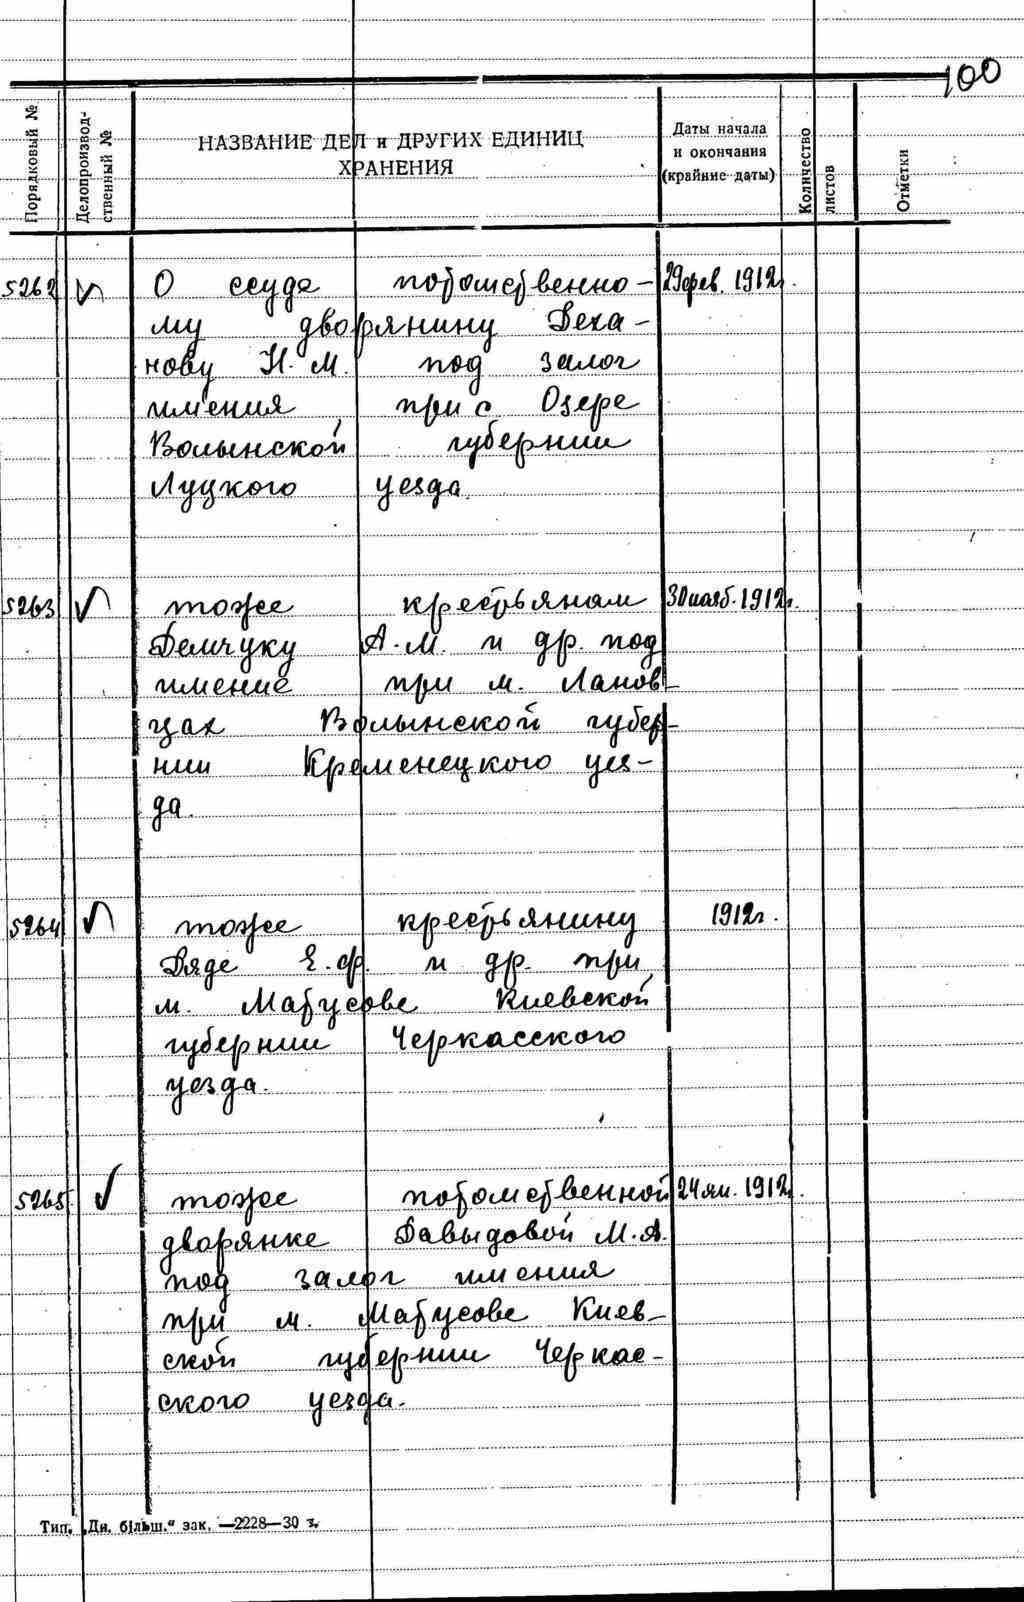 100
Порядковый №
Делопроизвод-
ственный №
НАЗВАНИЕ ДЕЛ и ДРУГИХ ЕДИНИЦ
ХРАНЕНИЯ
Даты начала
и окончания
(крайние даты)
Количество
листов
Отметки
5262 О ссуде потомственно- 29 фев. 1912г.
му дворянину Деха-
нову Н. М. под залог
имения при с Озере
Волынской губернии
Луцкого уезда.
5263 тоже крестьянам 30 нояб. 1912г.
Демчуку А. М. и др. под
имение при м. Лановь
цах Волынской губер-
нии Кременецкого уез-
да.
5264 тоже крестьянину 1912г.
Дяде Е. Ф. и др. при
м. Матусове Киевской
губернии Черкасского
уезда.
5265 тоже потомственной 24 ян. 1912г.
дворянке Давыдовой М. А.
под залог имения
при м. Матусове Киев-
ской губернии Черкас-
ского уезда.
Тип. „Дн. більш.“ зак. —2228—30 г.